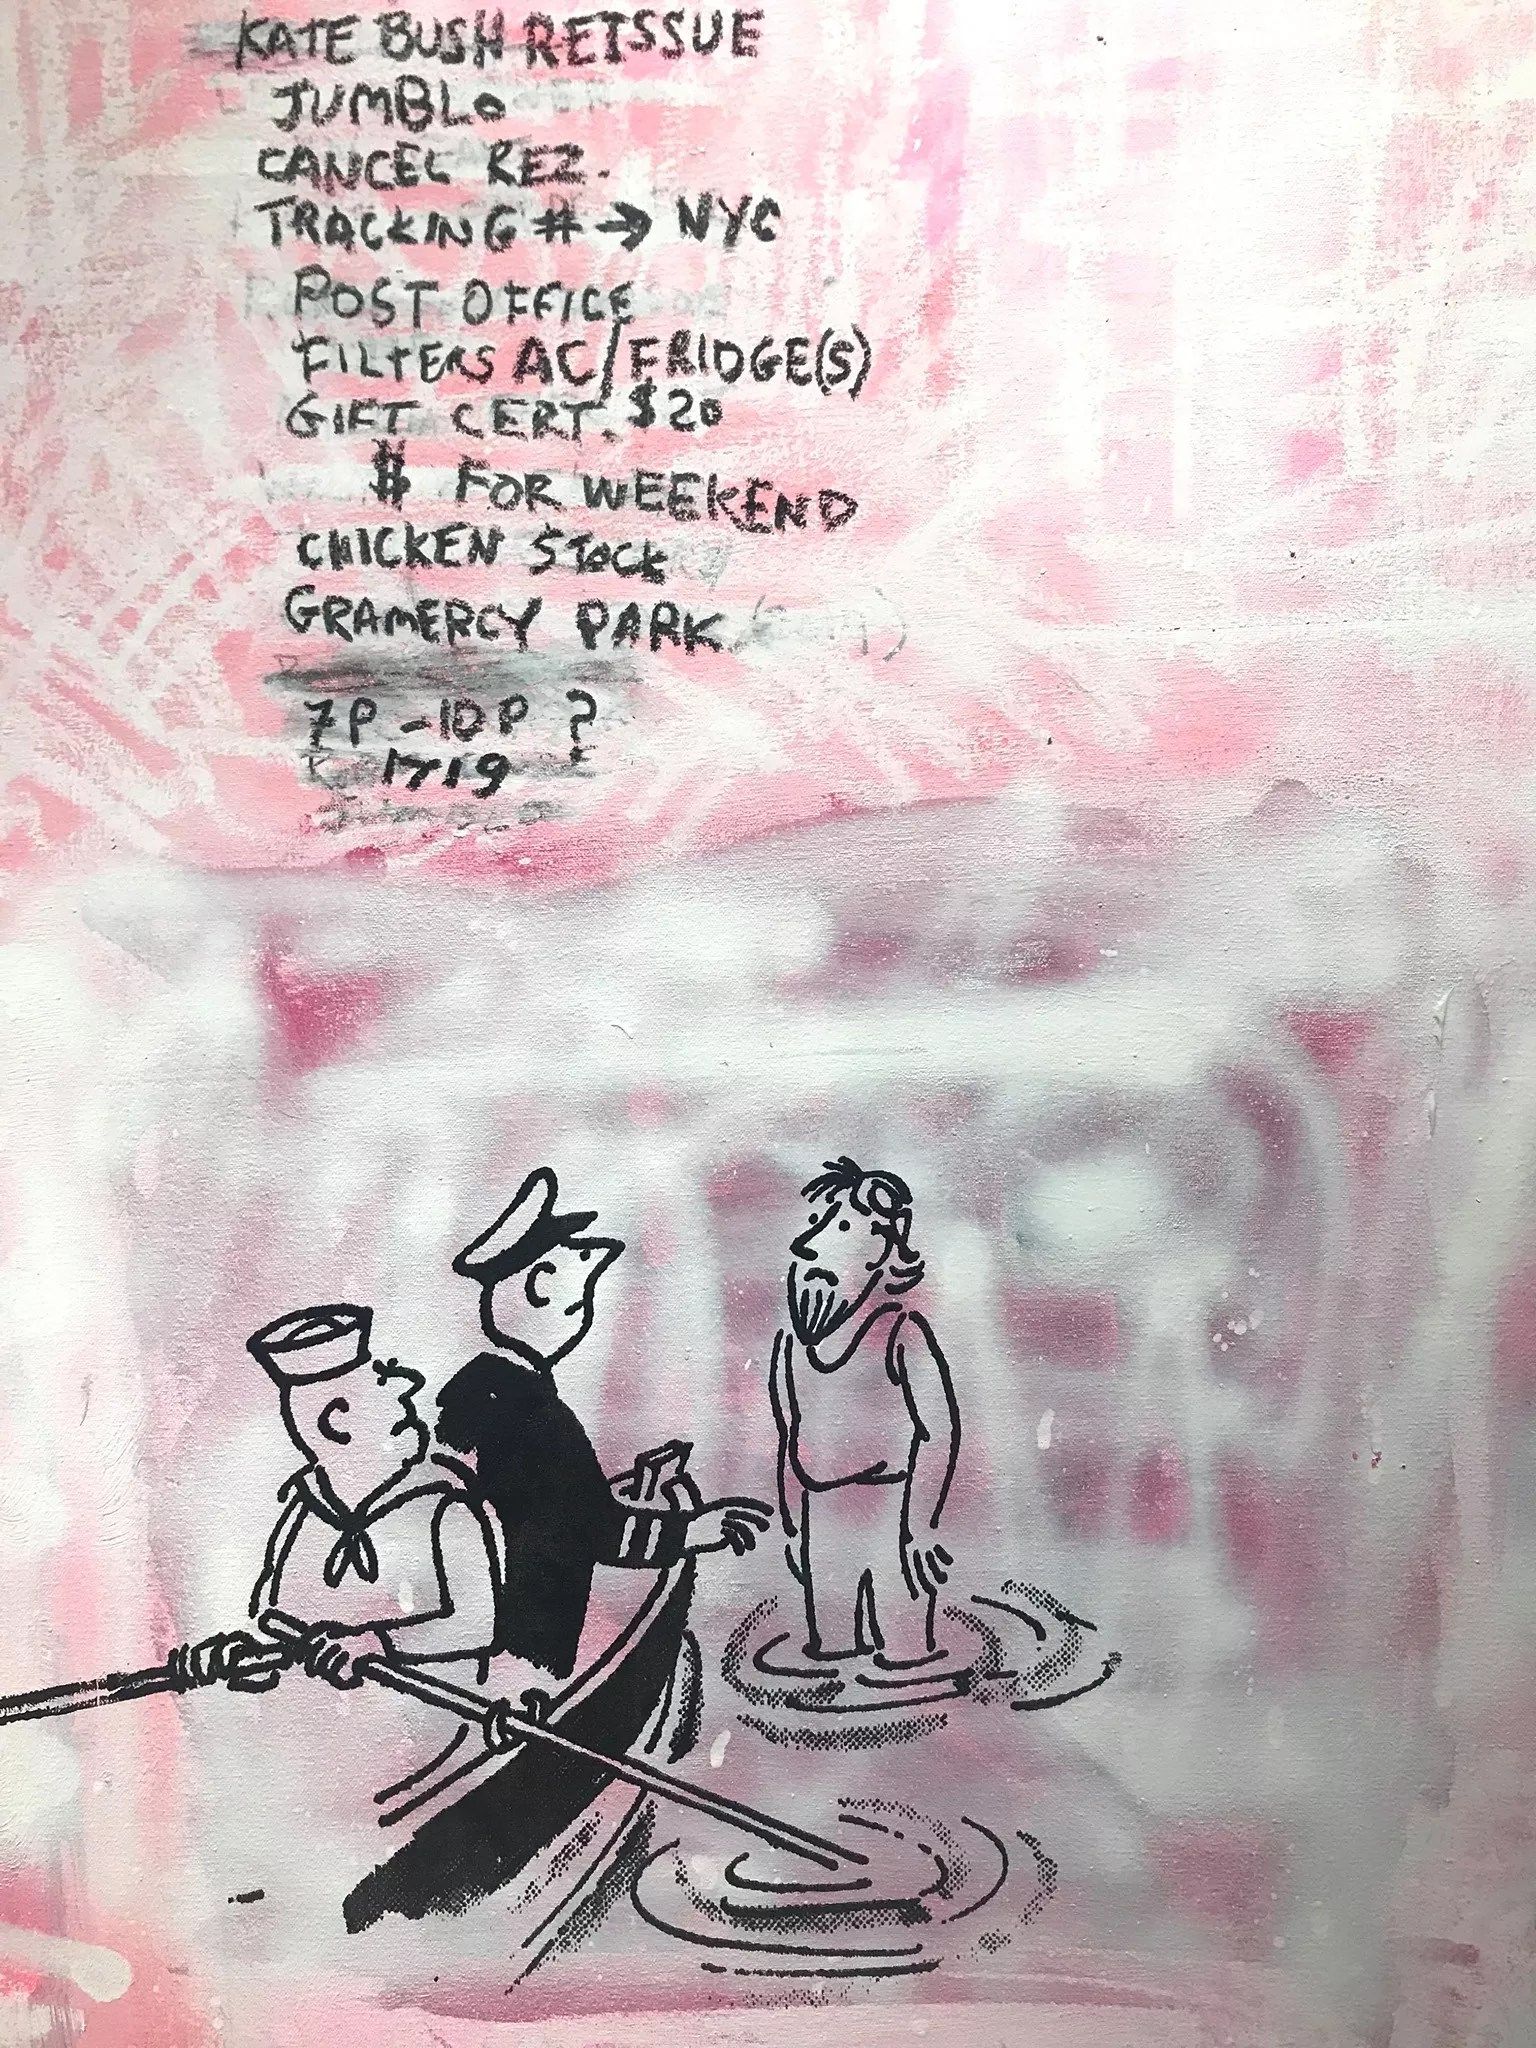 KATE BUSH REISSUE
JUMBLO
CANCEL REZ.
TRACKING # → NYC
POST OFFICE
FILTERS AC/FRIDGE(S)
GIFT CERT. $20
$ FOR WEEKEND
CHICKEN STOCK
GRAMERCY PARK
7P-10P ?
1719